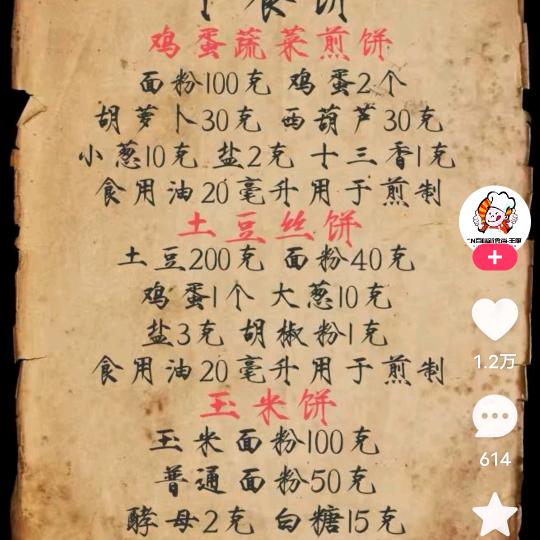 鸡蛋蔬菜煎饼
面粉100克 鸡蛋2个
胡萝卜30克 西葫芦30克
小葱10克 盐2克 十三香1克
食用油20毫升用于煎制
土豆丝饼
土豆200克 面粉40克
鸡蛋1个 大葱10克
盐3克 胡椒粉1克
食用油20毫升用于煎制
玉米饼
玉米面粉100克
普通面粉50克
酵母2克 白糖15克
1.2万
614